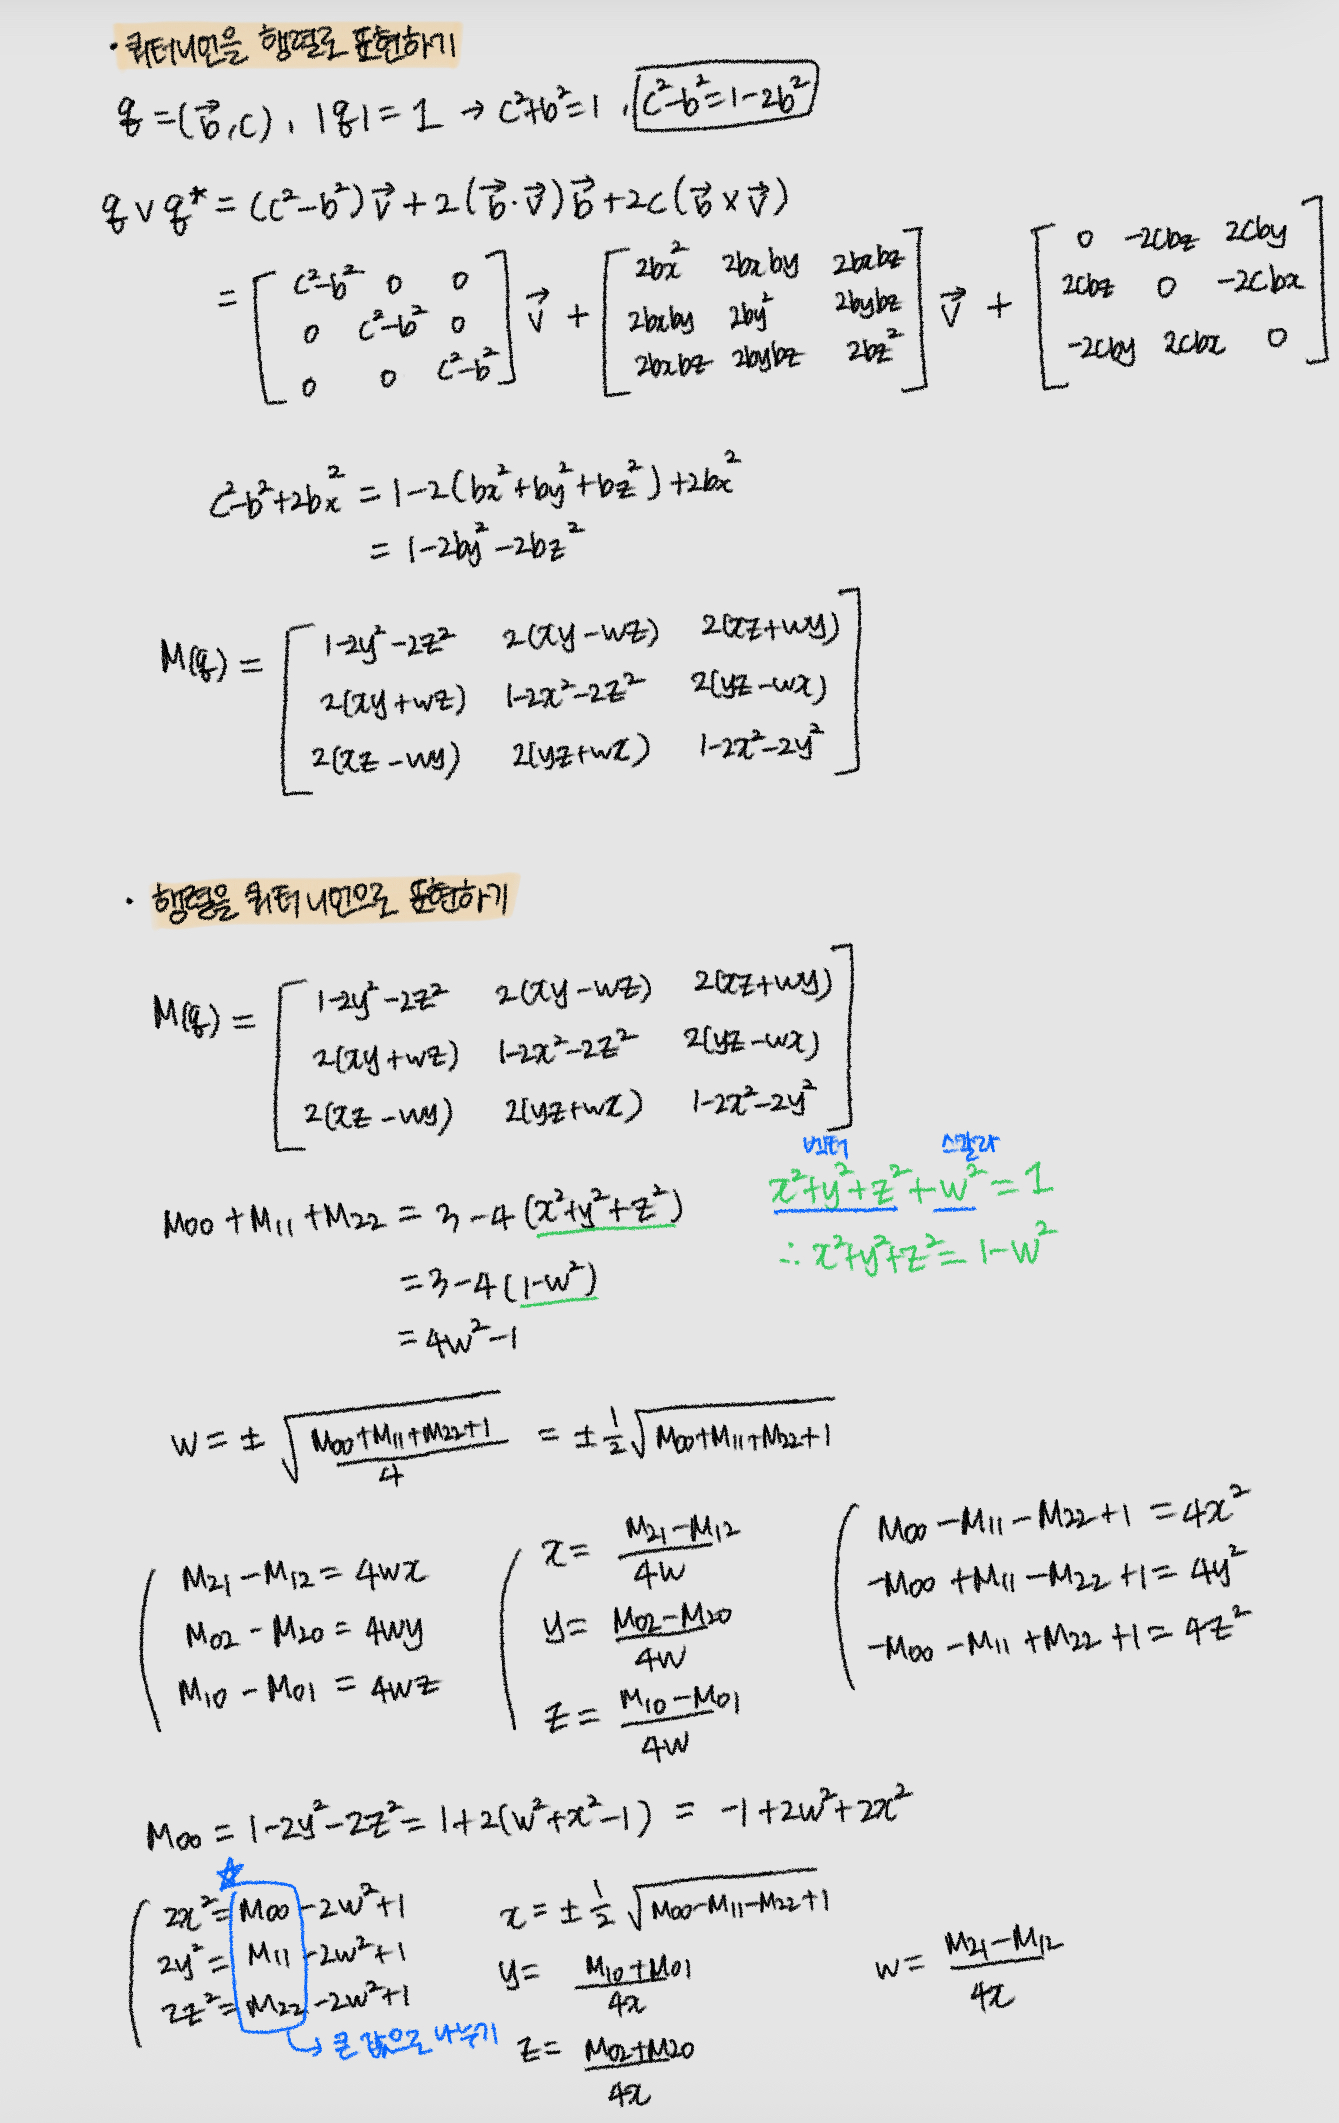 · 쿼터니언을 행렬로 표현하기
q = (b⃗, c), |q| = 1 → c²+b²=1, c²-b²=1-2b²
q v q* = (c²-b²)v⃗ + 2(b⃗·v⃗)b⃗ + 2c(b⃗×v⃗)
= [c²-b² 0 0; 0 c²-b² 0; 0 0 c²-b²] v⃗ + [2bx² 2bxby 2bxbz; 2bxby 2by² 2bybz; 2bxbz 2bybz 2bz²] v⃗ + [0 -2cbz 2cby; 2cbz 0 -2cbx; -2cby 2cbx 0]
c²-b²+2bx² = 1-2(bx²+by²+bz²)+2bx²
= 1-2by²-2bz²
M(q) = [1-2y²-2z² 2(xy-wz) 2(xz+wy)
2(xy+wz) 1-2x²-2z² 2(yz-wx)
2(xz-wy) 2(yz+wx) 1-2x²-2y²]
· 행렬을 쿼터니언으로 표현하기
M(q) = [1-2y²-2z² 2(xy-wz) 2(xz+wy)
2(xy+wz) 1-2x²-2z² 2(yz-wx)
2(xz-wy) 2(yz+wx) 1-2x²-2y²]
벡터 스칼라
M00+M11+M22 = 3-4(x²+y²+z²)
x²+y²+z²+w²=1
= 3-4(1-w²)
∴ x²+y²+z²=1-w²
= 4w²-1
w = ± √((M00+M11+M22+1)/4) = ± 1/2 √(M00+M11+M22+1)
M21-M12 = 4wx
M02-M20 = 4wy
M10-M01 = 4wz
x = (M21-M12)/4w
y = (M02-M20)/4w
z = (M10-M01)/4w
M00-M11-M22+1 = 4x²
-M00+M11-M22+1 = 4y²
-M00-M11+M22+1 = 4z²
M00 = 1-2y²-2z² = 1+2(w²+x²-1) = -1+2w²+2x²
☆
2x² = M00-2w²+1
2y² = M11-2w²+1
2z² = M22-2w²+1
→ 큰 값으로 나누기
x = ± 1/2 √(M00-M11-M22+1)
y = (M10+M01)/4x
z = (M02+M20)/4x
w = (M21-M12)/4x